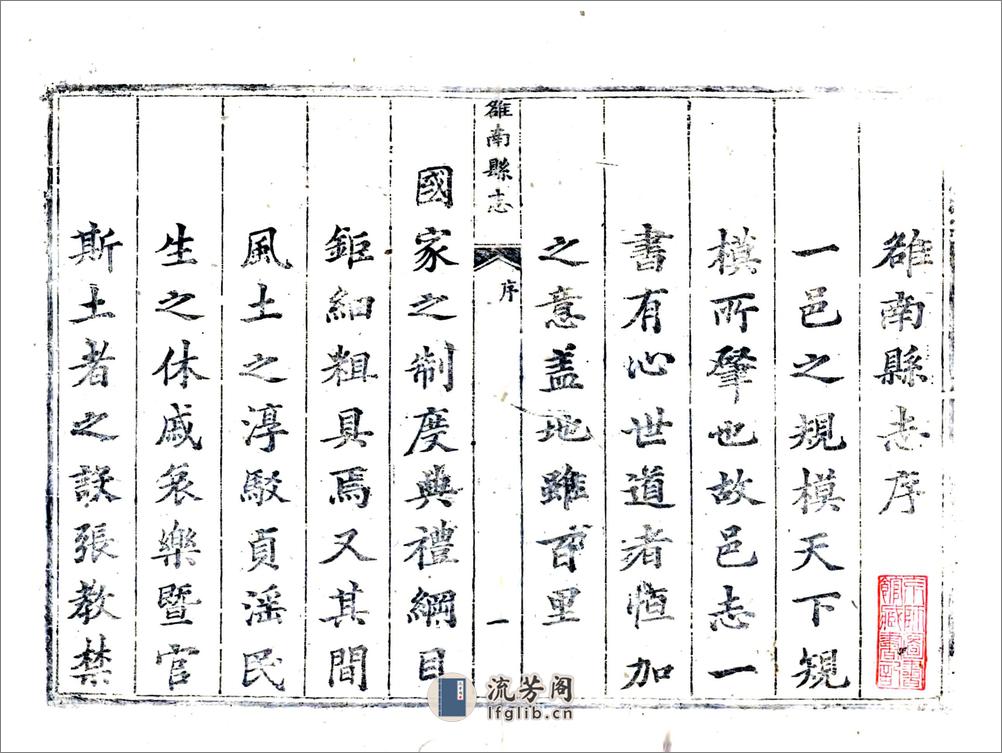 雒南縣志序
一邑之規模天下規
模所肇也故邑志一
書有心世道者恒加
之意盖地雖百里
雒南縣志
序
一
國家之制度典禮綱目
鉅細粗具焉又其間
風土之淳駁貞滛民
生之休戚哀樂暨官
斯土者之設張教禁
流芳阁
lfglib.cn